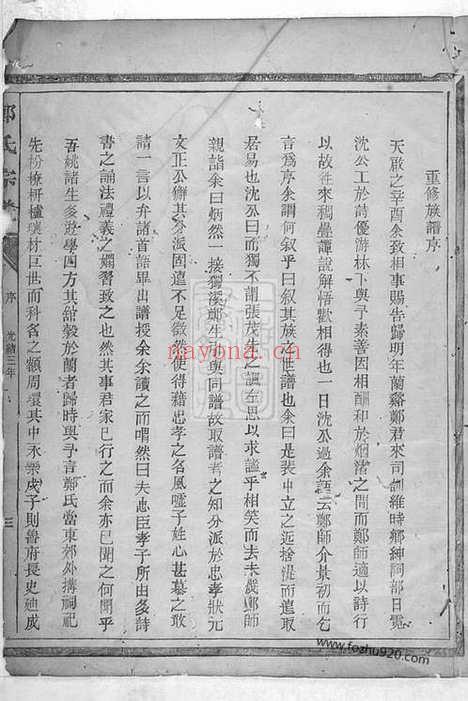 重修族譜序
天啟之辛酉余致相事賜告歸明年蘭谿鄭君來司訓維時鄉紳阿部日霓
沈公工於詩優游林下與予素善因相酬和於烟渚之間而鄭師適以詩行
以故往來稠疊譚說解悟歡相得也一日沈公過余語云鄭師介景初而乞
言為序余謂何叙乎曰叙其族之世譜也余曰是裴中立之近捨湜而遠取
居易也沈公曰而獨不謂張茂先之讓左思以求謐乎相笑而去未幾鄭師
親詣余曰炳然一接獨溪鄭生始與同譜故取譜者之知分派於忠孝狀元
文正公獅其分派固遠不足徵然使得藉忠孝之名風噓子姓心甚慕之敢
請一言以弁諸首語畢出譜授余余讀之而喟然曰夫忠臣孝子所由多詩
書之誦法禮義之嫺習致之也然其事君家已行之而余亦已聞之何間乎
吾姚諸生多遊學四方其綰轂於蘭者歸時與予言鄭氏當東郊外搆祠祀
先枌橑枅櫨瓌材巨世而科名之額周環其中永樂戊子則魯府長史廸成
鄭氏宗譜
序
光緒三年
三
www.nayona.cn
www.fozhu920.com